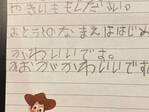 やきいももんだい。
おとうとのなまえははじめ
かわいいです。
かおがかわいいです。